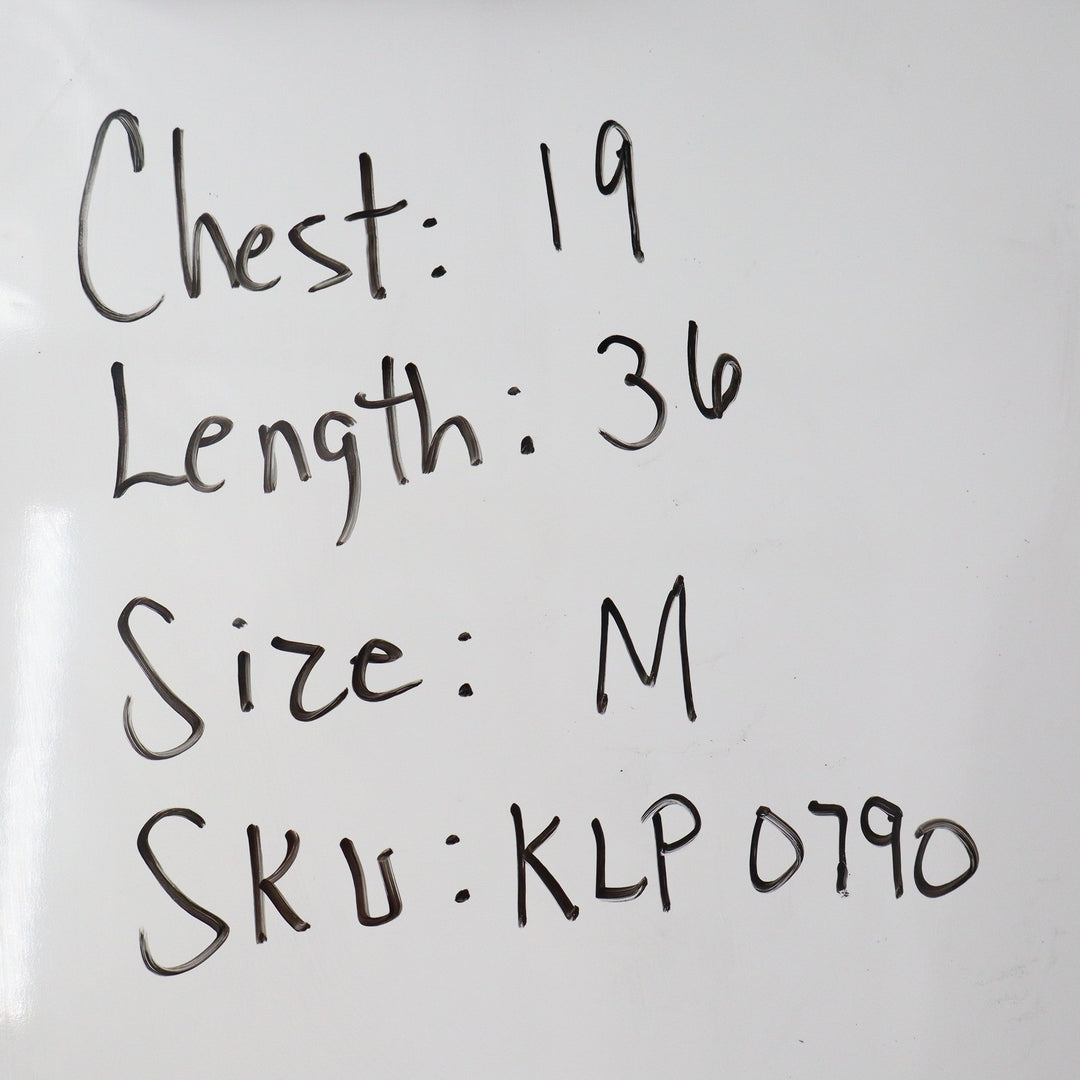 Chest: 19
Length: 36
Size: M
SKU: KLP 0790